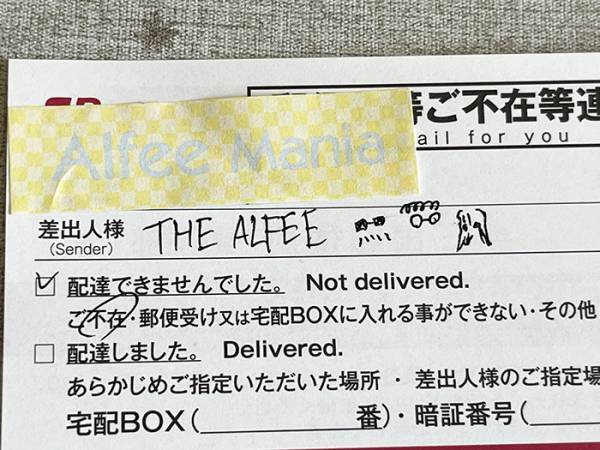 Alfee Mania
ご不在等連
ail for you
差出人様 THE ALFEE
(Sender)
☑ 配達できませんでした。 Not delivered.
ご不在・郵便受け又は宅配BOXに入れる事ができない・その他
☐ 配達しました。 Delivered.
あらかじめご指定いただいた場所 ・ 差出人様のご指定場
宅配BOX( 番)・暗証番号(